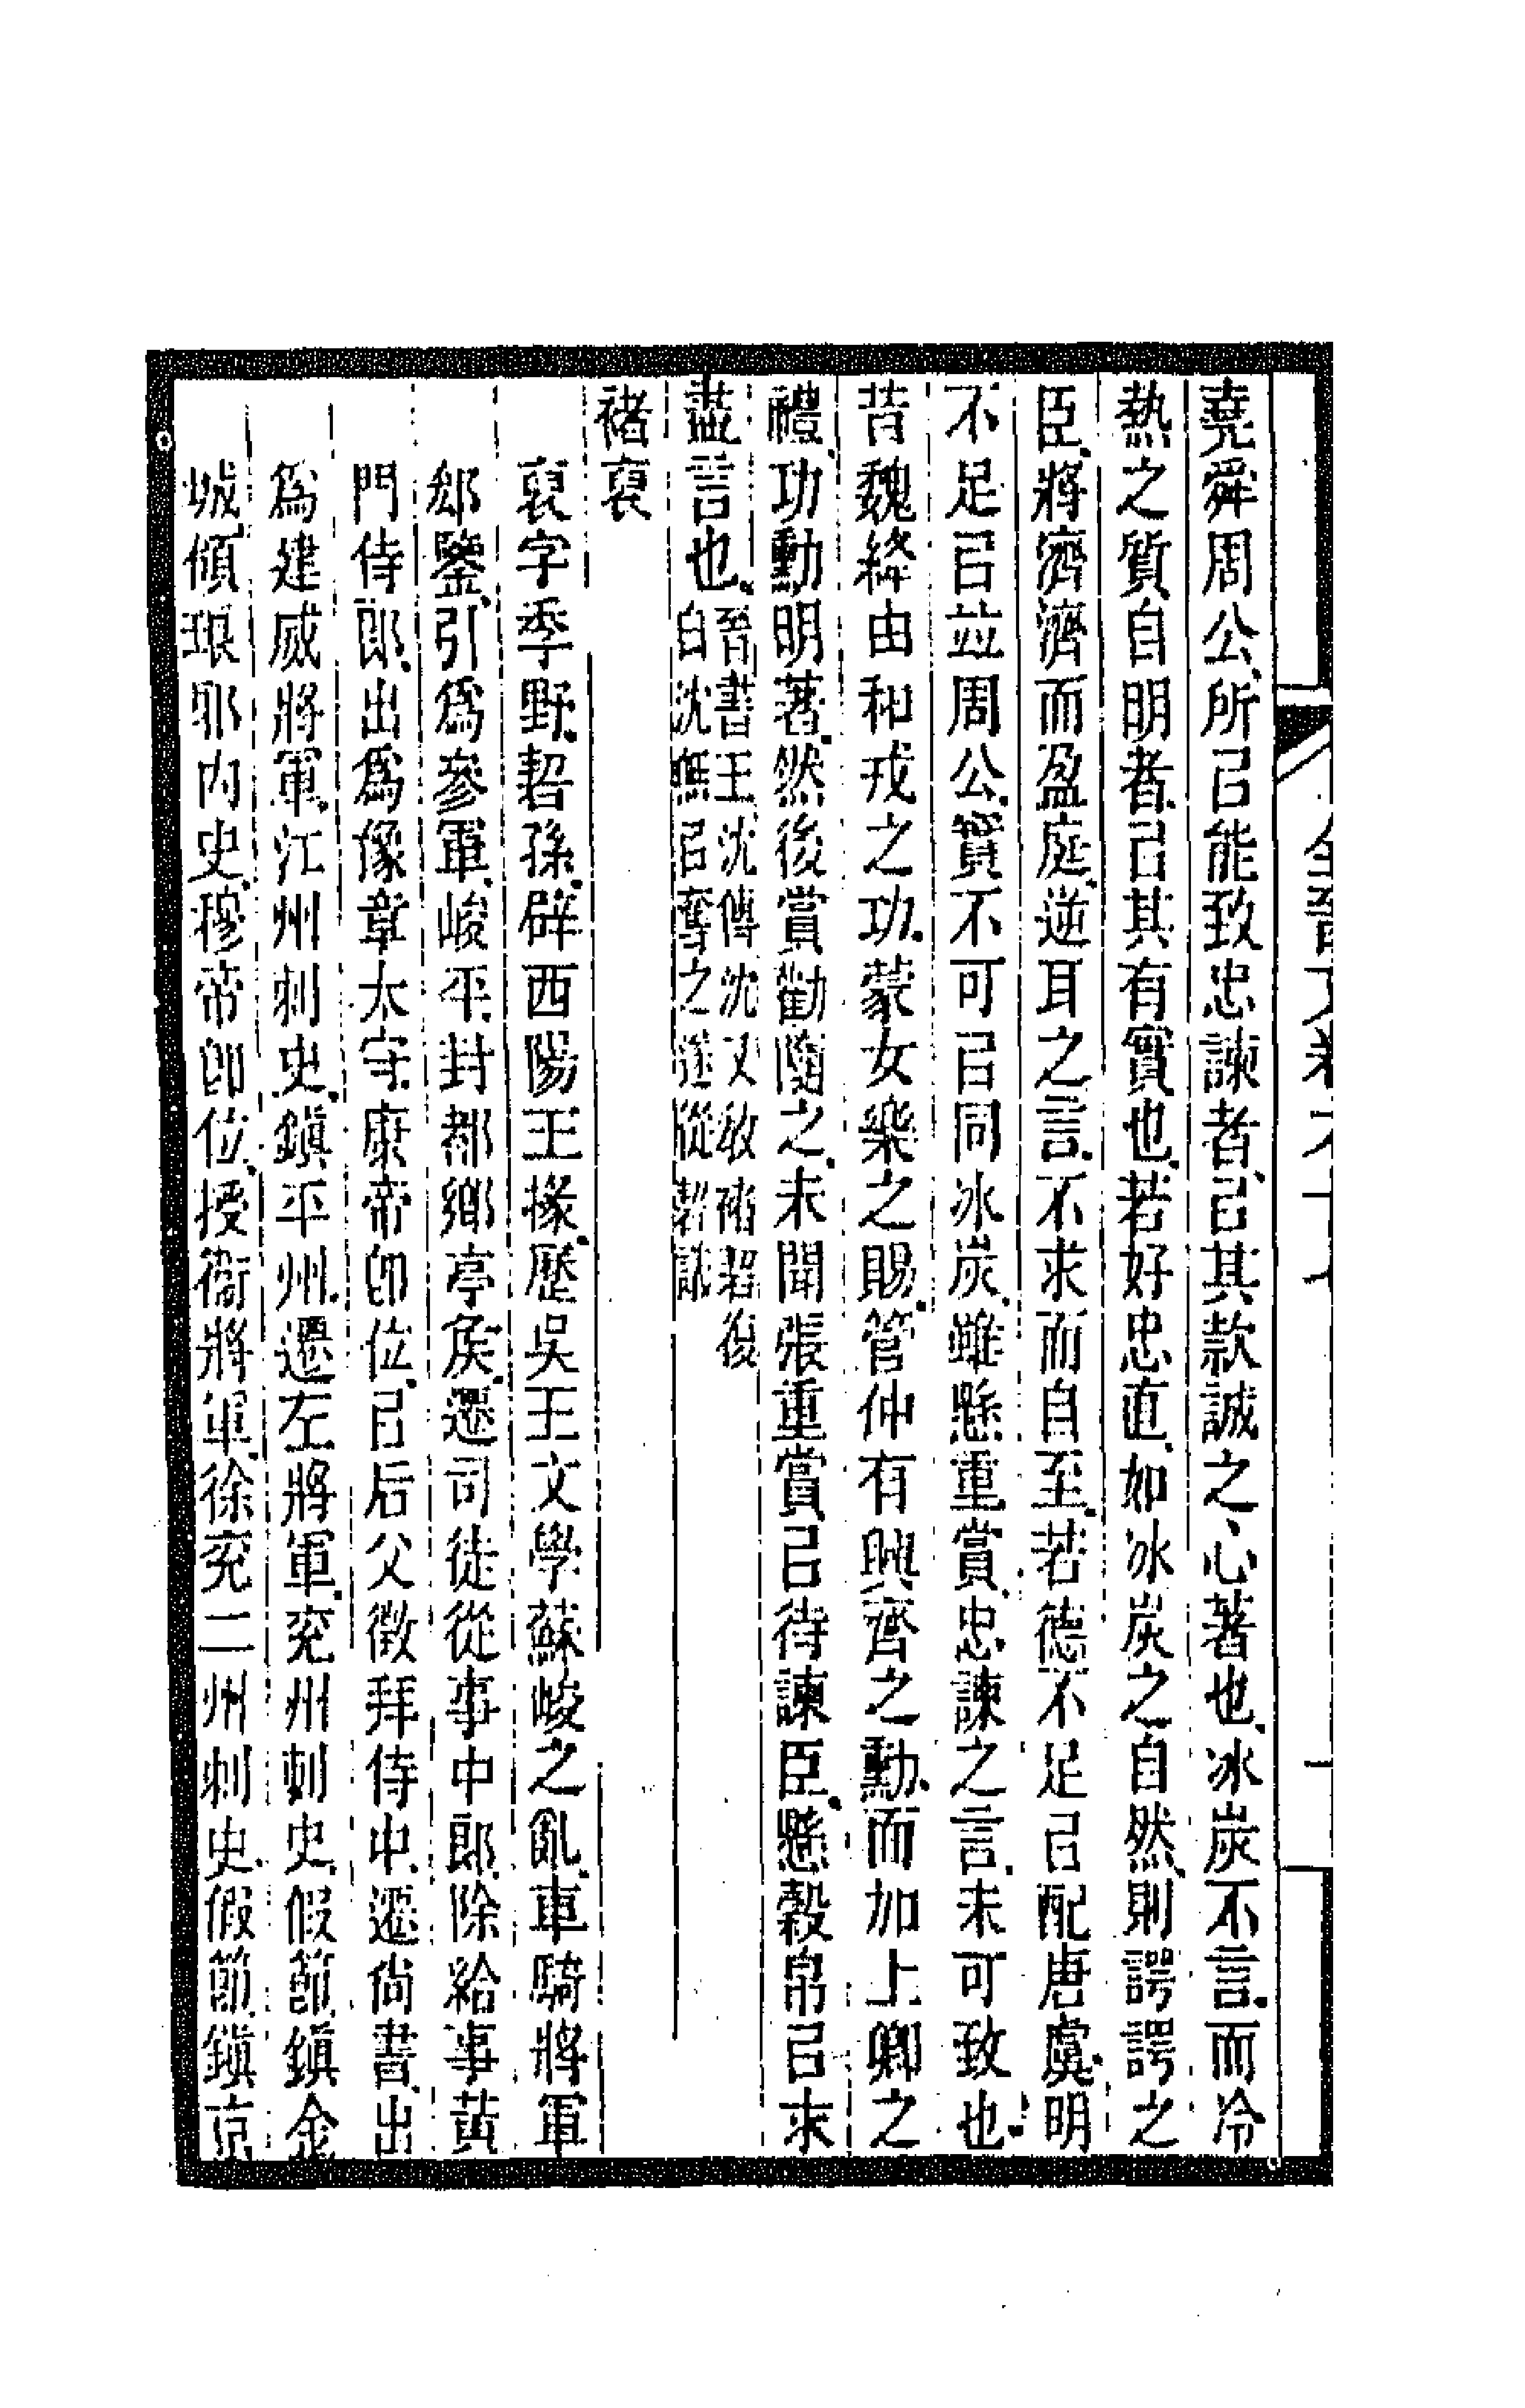 堯舜周公、所㠯能致忠諫者、㠯其款誠之心著也、冰炭不言、而冷
熱之質自明者、㠯其有實也、若好忠直、如冰炭之自然、則諤諤之
臣、將濟濟而盈庭、逆耳之言、不求而自至、若德不足㠯配唐虞、明
不足㠯竝周公、實不可㠯同冰炭、雖懸重賞、忠諫之言、未可致也、
昔魏絳由和戎之功、蒙女樂之賜、管仲有興齊之勳、而加上卿之
禮、功勳明著、然後賞勸隨之、未聞張重賞㠯待諫臣、懸穀帛㠯求
盡言也、
晉書王沈傳沈又敎褚䂮復
白沈無㠯奪之遂從䂮議
褚裒
裒字季野、䂮孫、辟西陽王掾、歷吳王文學、蘇峻之亂、車騎將軍
郄鑒、引爲參軍、峻平、封都鄉亭矦、遷司徒從事中郎、除給事黃
門侍郎、出爲豫章太守、康帝卽位、㠯后父徵拜侍中、遷尙書、出
爲建威將軍、江州刺史、鎭半州、遷左將軍、兖州刺史、假節、鎭金
城、傾琅邪內史、穆帝卽位、授衞將軍、徐兖二州刺史、假節、鎭京